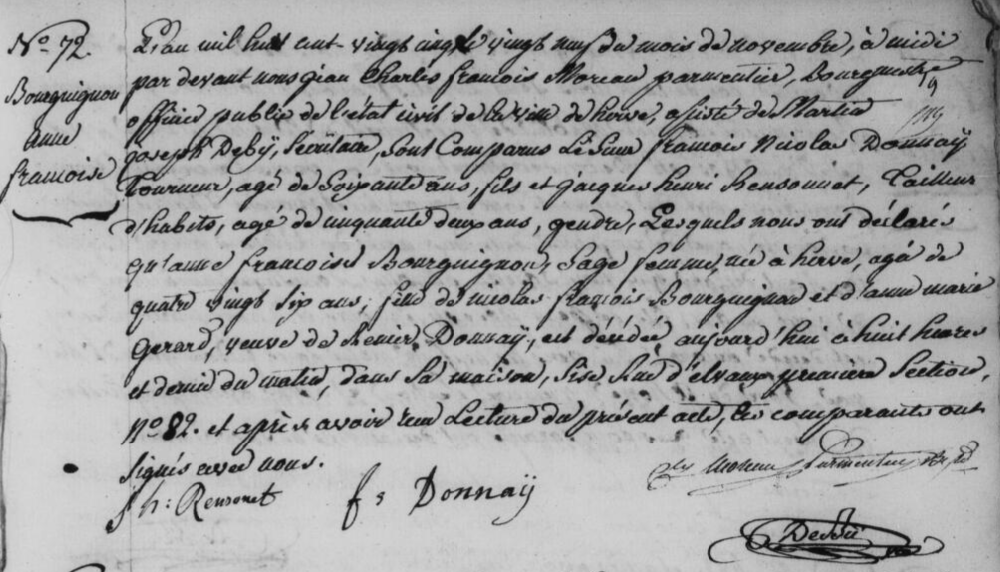 N.o 72.
Bourguignon
anne
francoise
L'an mil huit cent vingt cinq le vingt neuf du mois de novembre, à midi
par devant nous jean Charles francois Moreau parmentier, Bourguestre
officier public de l'état civil de la ville de herve, assisté de Martin
joseph Debÿ, Secrétaire, sont Comparus Le Sieur francois Nicolas Donnaÿ,
Tourneur, agé de Soixante ans, fils et jacques henri Rensonnet, Tailleur
d'habits, agé de cinquante deux ans, gendre, Lesquels nous ont déclarés
qu'anne francoise Bourguignon, Sage femme, née à herve, agée de
quatre vingt Six ans, fille de nicolas francois Bourguignon et d'anne marie
Gerard, veuve de Remier Donnaÿ, est décédée aujourd'hui à huit heures
et demie du matin, dans sa maison, sise Rue d'elvaux premiere Section,
N.o 82. et après avoir eu Lecture du présent acte, les comparants ont
signés avec nous.
j h: Rensonet
f s Donnaÿ
Moreau Parmentier
Debÿ